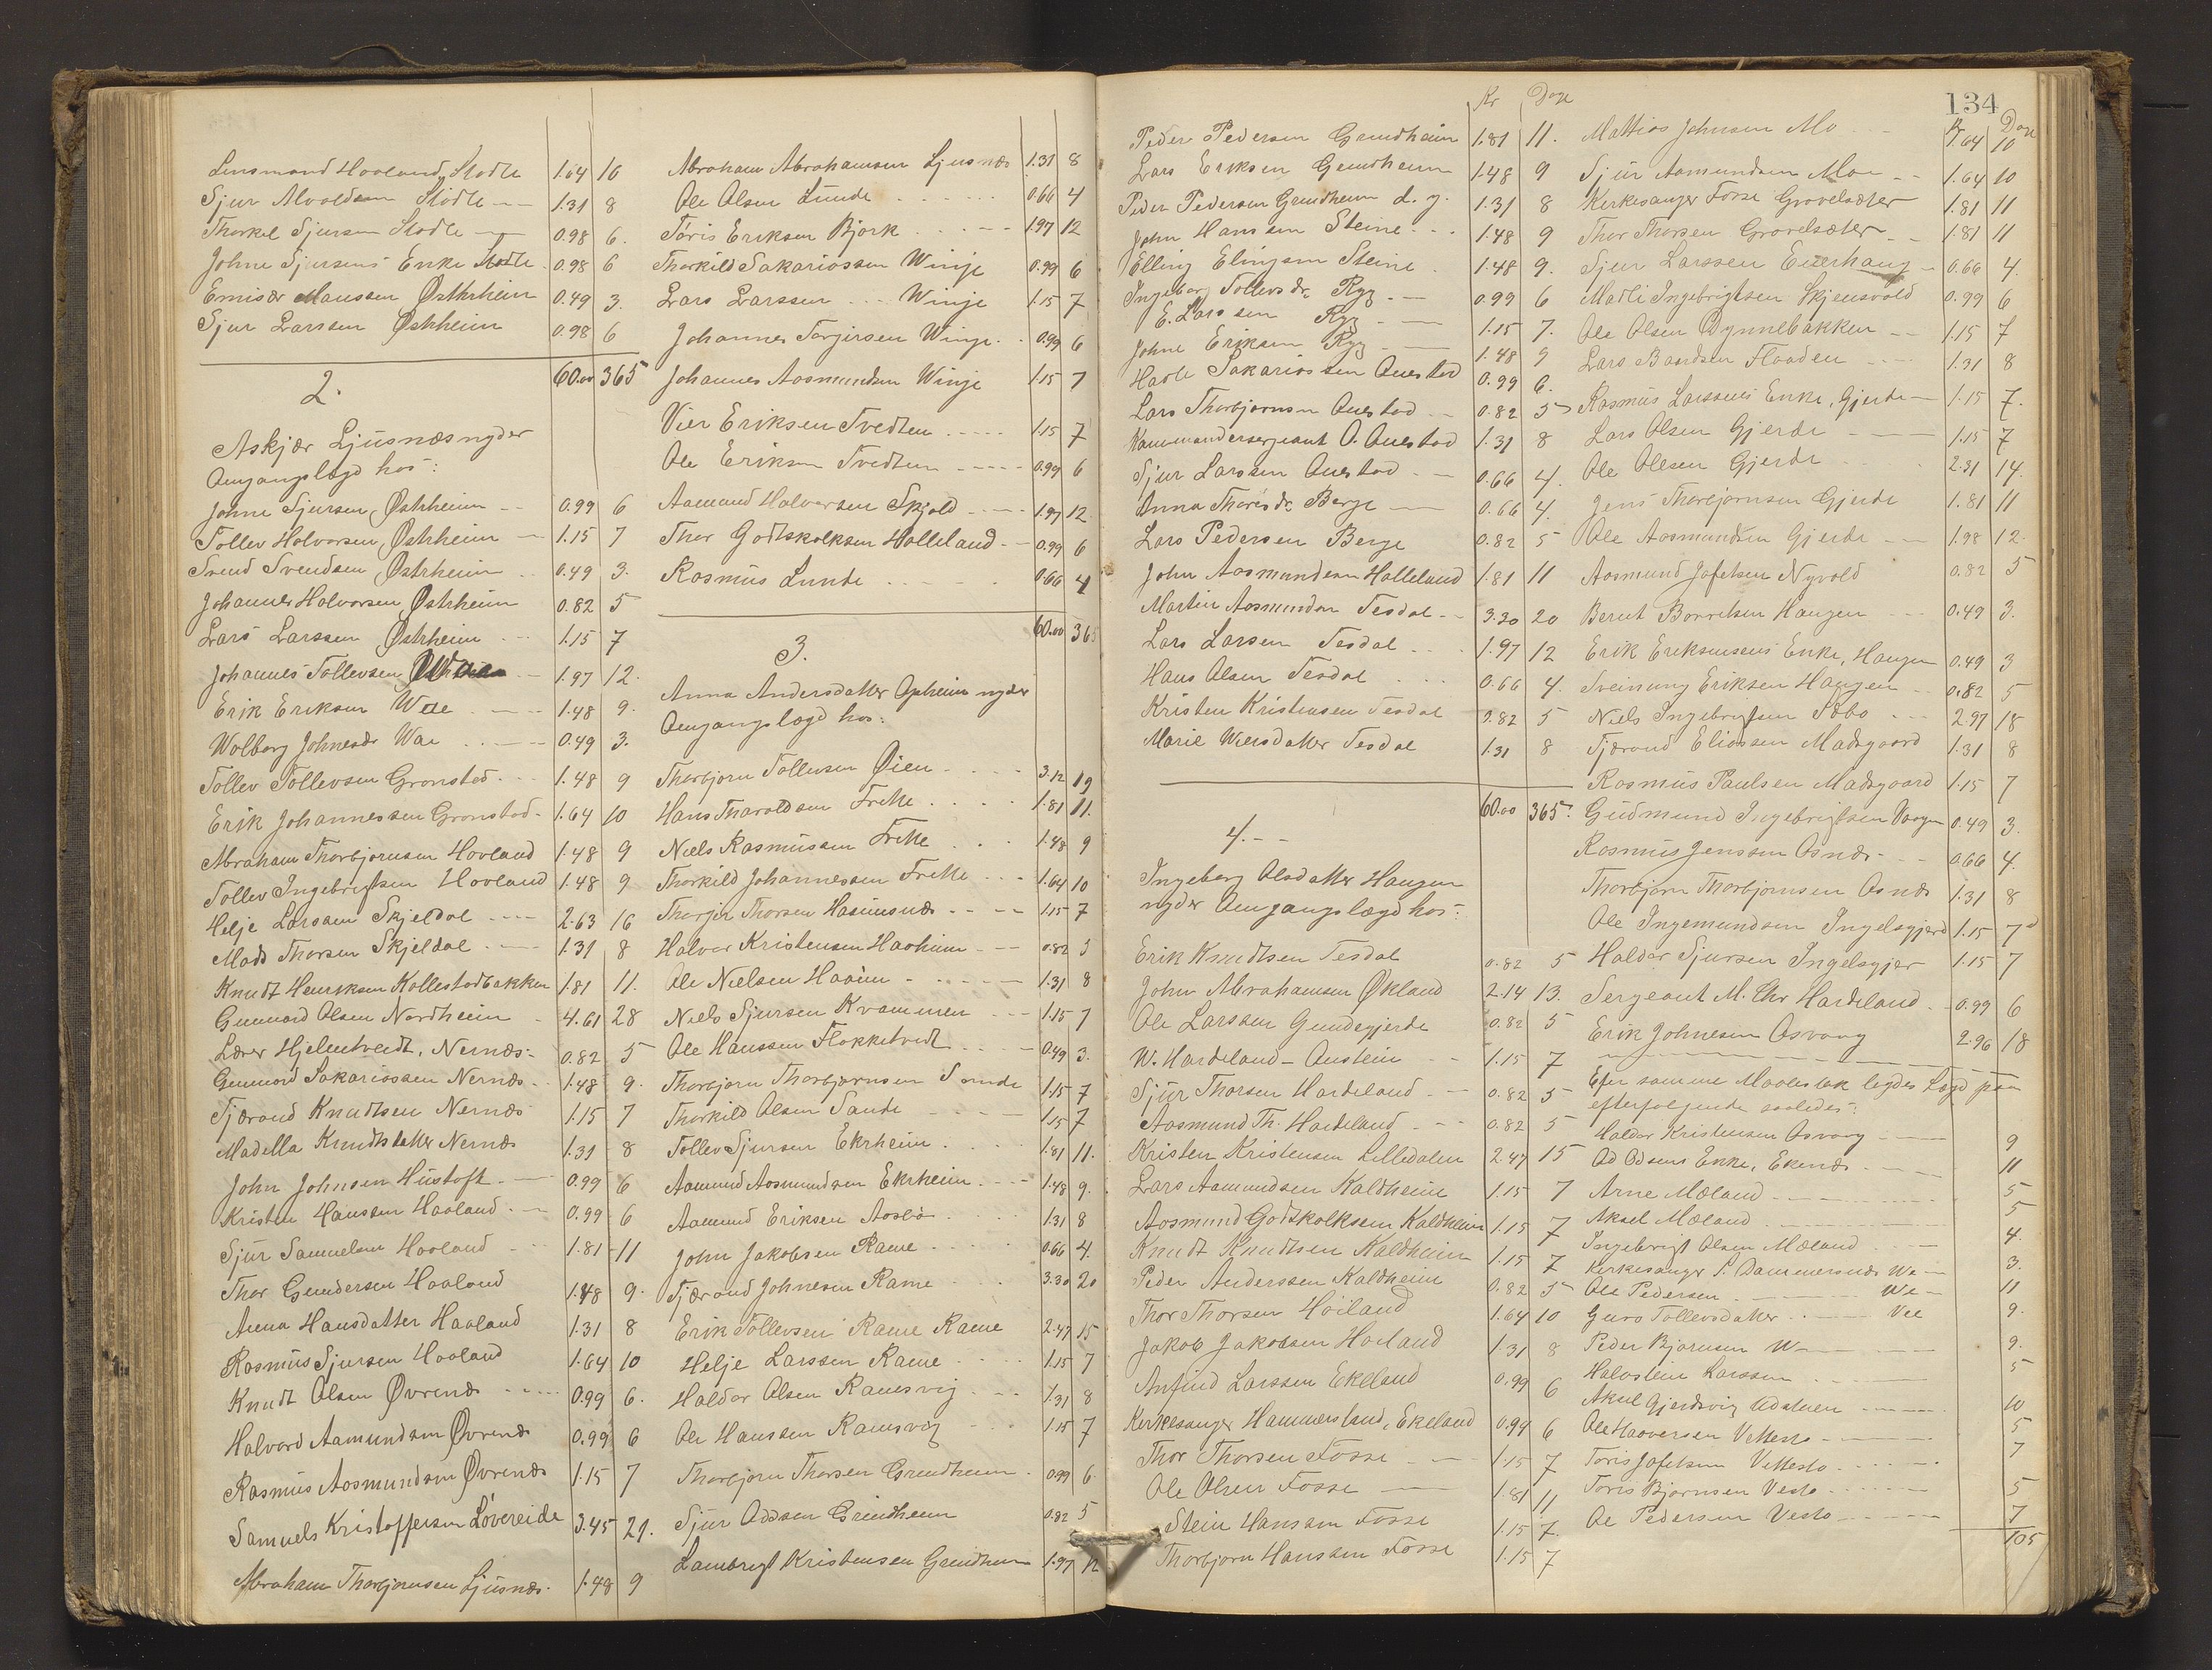 Lensmand Hooland, Stødle 1.64 10
Sjur Alvoldsen Stødle 1.31 8
Thorkel Sjursen Stødle 0.98 6.
Johne Sjursens Enke Stødle 0.98 6
Emisær Maussen Østhrheim 0.49 3.
Sjur Larsen Østrheim 0.98 6
60.00 365
2.
Askjær Ljusnæs nyder
Omgangslægd hos:
Johne Sjursen, Østrheim 0.99 6
Tollev Holvorsen, Østrheim 1.15 7
Svend Svendsen, Østrheim 0.49 3.
Johannes Holvorsen, Østrheim 0.82 5
Lars Larssen Østrheim 1.15 7
Johannes Tollevsen 1.97 12.
Erik Eriksen Wae 1.48 9.
Wolborg Johnesdr Wae 0.49 3.
Tollev Tollevsen Gronstod 1.48 9
Erik Johannessen Gronstod 1.64 10
Abraham Thorbjornsen Hovland 1.48 9
Tollev Ingebrigtsen Hovland 1.48 9
Helje Larssen Skjeldal 2.63 16
Mads Thorsen Skjeldal 1.31 8
Knudt Henriksen Kollestodbakken 1.81 11.
Gunnard Olsen Nordheim 4.61 28
Lærer Hjelmtvedt, Nernæs 0.82 5
Gunnard Sakariassen Nernæs 1.48 9.
Tjærand Knudtsen Nernæs 1.15 7
Madella Knudtsdatter Nernæs 1.31 8
John Johnsen Hustoft 0.99 6
Kristen Hanssen Haaland 0.99 6
Sjur Samuelsen Hooland 1.81 11
Thor Gundersen Haaland 1.48 9.
Anna Hansdatter Haaland 1.31 8
Rasmus Sjursen Hooland 1.64 10
Knudt Olsen Øvrenæs 0.99 6.
Halvord Aamundsen Øvrenæs 0.99 6
Rasmus Aosmundsen Øvrenæs 1.15 7
Samuels Kristoffersen Løvereide 3.45 21.
Abraham Thorbjornsen Ljusnæs 1.48 9
Abraham Abrahamsen Ljusnæs 1.31 8
Ole Olsen Lunde 0.66 4
Tøris Eriksen Bjørk 1.97 12
Thorkild Sakariossen Winje 0.99 6
Lars Larssen Winje 1.15 7
Johannes Torgirsen Winje 0.99 6
Johannes Aosmundsen Winje 1.15 7
Vier Eriksen Tvedten 1.15 7
Ole Eriksen Tvedten 0.99 6
Aamund Halvorsen Skjold 1.97 12
Thor Godtskolksen Holleland 0.99 6
Rosmus Lunde 0.66 4
60.00 365
3.
Anna Andersdatter Opheim nyder
Omgangslægd hos:
Thorbjorn Tollevsen Øien 3.12 19
Hans Tharoldsen Frette 1.81 11.
Niels Rasmussen Frette 1.48 9
Thorkild Johannessen Frette 1.64 10
Thorgir Thorsen Hasumsnæs 1.15 7
Halvor Kristensen Haaheim 0.82 5
Ole Nielsen Haaim 1.31 8
Niels Sjursen Kvammen 1.15 7
Ole Hanssen Flokketvedt 0.49 3.
Thorbjorn Thorbjørnsen Sande 1.15 7
Thorkild Olsen Sande 1.15 7
Tollev Sjursen Ekrheim 1.81 11.
Aamund Aosmundsen Ekrheim 1.48 9.
Aamund Eriksen Aosbø 1.31 8
John Jakobsen Rame 0.66 4.
Tjærand Johnesen Rame 3.30 20
Erik Tollevsen Rame Rame 2.47 15
Helje Larssen Rame 1.15 7
Haldor Olsen Ramsvig 1.31 8
Ole Hanssen Ramsvig 1.15 7
Thorbjorn Thorsen Grindheim 0.99 6
Sjur Oddsen Grindheim 0.82 5
Lambrigt Kristensen Grindheim 1.97 12
Kr Dage
Peder Pedersen Grindheim 1.81 11.
Lars Eriksen Grindheim 1.48 9
Peder Pedersen Grindheim d. y. 1.31 8
John Hanssen Steine 1.48 9
Elling Elingsen Steine 1.48 9.
Ingeborg Tollevsdr. Ryg 0.99 6
E. Larssen Ryg 1.15 7.
Johne Eriksen Ryg 1.48 9
Hadle Sakariossen Questod 0.99 6.
Lars Thorbjørnsen Questad 0.82 5
Kommandersergeant O. Questad 1.31 8
Sjur Larssen Questad 0.66 4.
Anna Thoresdr. Berge 0.66 4.
Lars Pedersen Berge 0.82 5
John Aosmundsen Holleland 1.81 11
Martin Aosmundsen Tesdal 3.30 20
Lars Larsen Tesdal 1.97 12
Hans Olsen Tesdal 0.66 4.
Kristen Kristensen Tesdal 0.82 5
Marie Wiersdatter Tesdal 1.31 8
60.00 365.
4.
Ingeborg Olsdatter Haugen
nyder Omgangslægd hos:
Erik Knudtsen Tesdal 0.82 5
John Abrahamsen Økland 2.14 13.
Ole Larssen Gundegjerde 0.82 5
W. Hardeland - Austein 1.15 7
Sjur Thorsen Hardeland 0.82 5
Aosmund Th. Hardeland 0.82 5
Kristen Kristensen Lilledalen 2.47 15
Lars Aamundsen Kaldheim 1.15 7
Aosmund Godtskolksen Kaldheim 1.15 7
Knudt Knudtsen Kaldheim 1.15 7
Peder Anderssen Kaldheim 0.82 5
Thor Thorsen Høiland 1.64 10
Jakob Jakobsen Hoiland 1.31 8
Anfind Larssen Ekeland 0.99 6
Kirkesanger Hammersland, Ekeland 0.99 6
Thor Thorsen Fosse 1.15 7
Ole Olsen Fosse 1.81 11
Stein Hanssen Fosse 1.15 7.
Thorbjorn Hanssen Fosse 1.15 7
134
Kr Dage
Mattios Johnsen Mo 1.64 10
Sjur Aamundsen Moe 1.64 10
Kirkesanger Fosse Grovelsæter 1.81 11
Thor Thorsen Grovelsæter 1.81 11
Sjur Larssen Euerhaug 0.66 4.
Madli Ingebrigtsen Skjensvold 0.99 6
Ole Olsen Dynnebakken 1.15 7
Lars Baardsen Flaaden 1.31 8
Rasmus Larssens Enke, Gjerde 1.15 7.
Lars Olsen Gjerde 1.15 7
Ole Olesen Gjerde 2.31 14.
Jens Thorbjørnsen Gjerde 1.81 11
Ole Aosmundsen Gjerde 1.98 12.
Aosmund Jofetsen Nyvold 0.82 5
Bernt Borretsen Haugen 0.49 3.
Erik Eriksensens Enke, Haugen 0.49 3
Sveinung Eriksen Haugen 0.82 5
Niels Ingebrigtsen Søbo 2.97 18
Tjærand Eliassen Madsgaard 1.31 8
Rasmus Paulsen Madsgaard 1.15 7
Gudmund Ingebrigtsen Vaagen 0.49 3.
Rasmus Jenssen Osnæs 0.66 4.
Thorbjorn Thorbjornsen Osnæs 1.31 8
Ole Ingemundsen Ingelsgjerd 1.15 7
Haldor Sjursen Ingelsgjer 1.15 7
Sergeant M. Chr Hardeland 0.99 6
Erik Johnesen Osvaag 2.96 18
Efter samme Maalestok legdes Lægd paa
efterfolgende saaledes:
Haldor Kristensen Osvaag 9
Od Odsens Enke, Ekenæs 11
Arne Mæland 5
Aksel Mæland 5
Ingebrigt Olsen Mæland 4.
Kirkesanger S. Dammersnæs We 3.
Ole Pedersen We 11
Guro Tollevsdatter Vee 9.
Peder Bjornsen W 9.
Halvstein Larssen 5
Aksel Gjerdsvig Udaluen 10
Ole Haaversen Vettesto 5
Toris Jofetsen Vettesto 7
Toris Bjornsen Vesto 5
Ole Pedersen Vesto 7
105